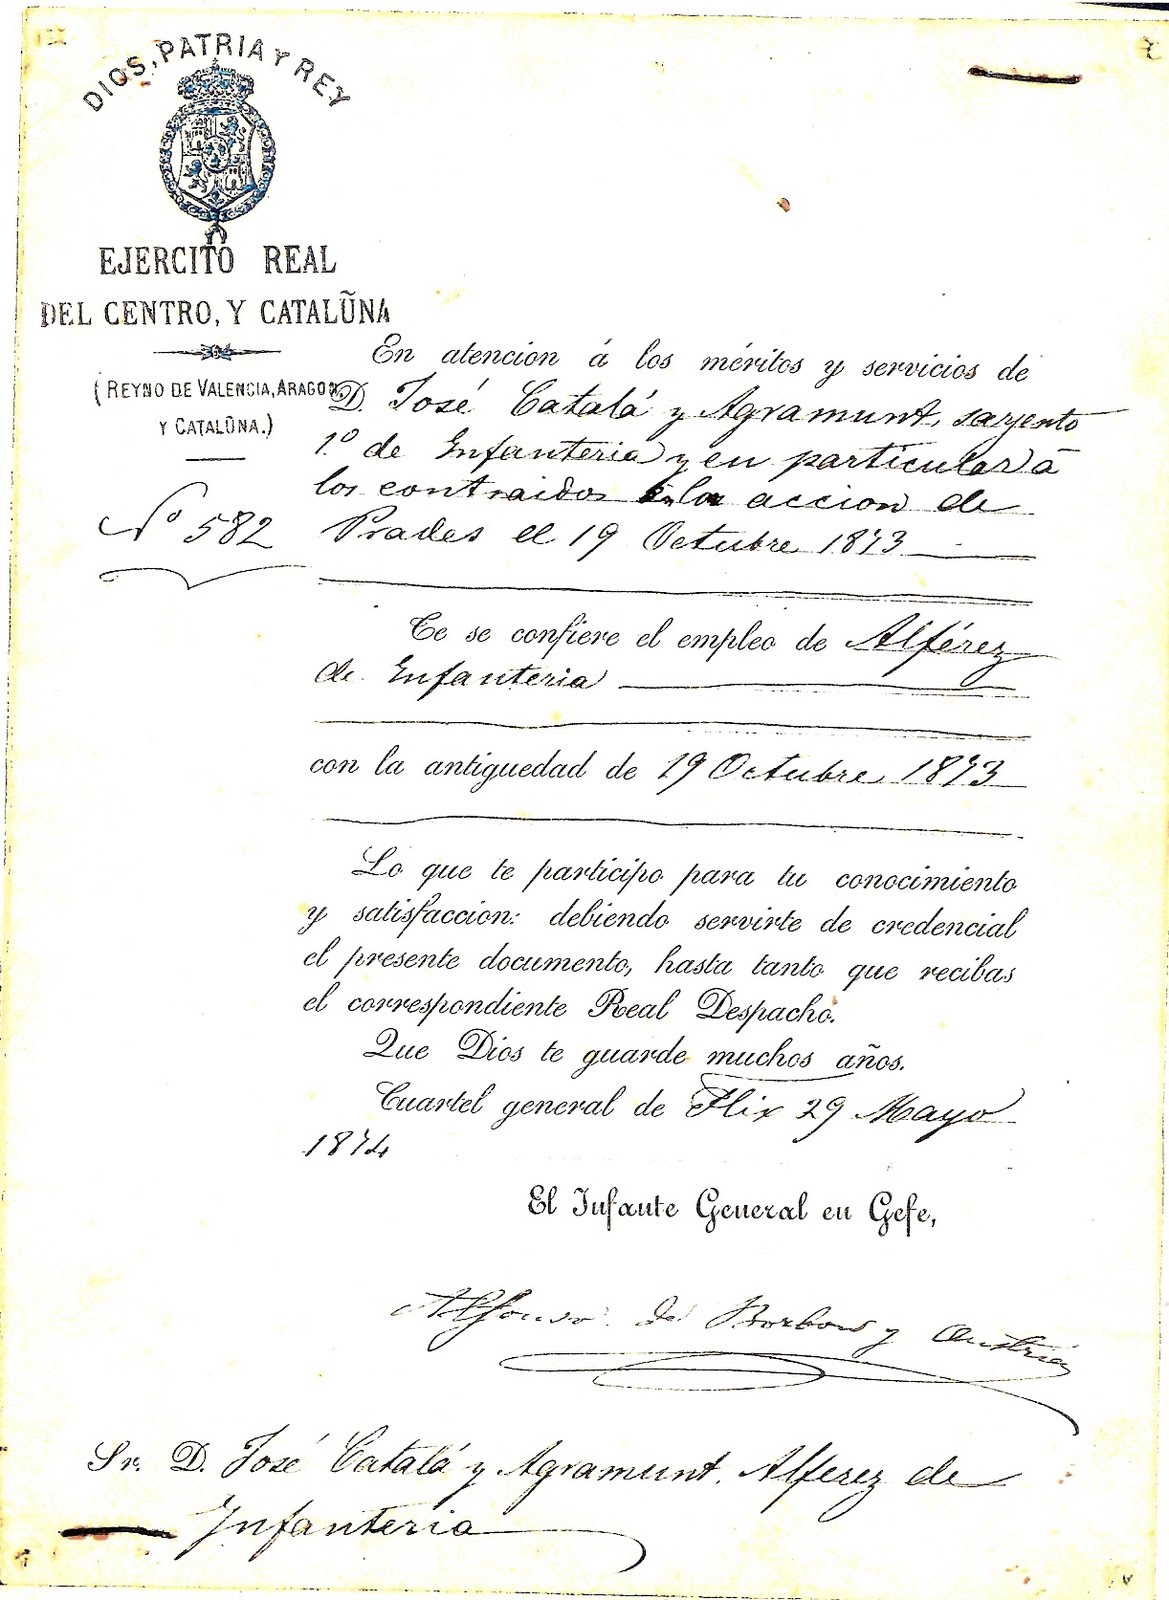 DIOS, PATRIA Y REY
EJERCITO REAL
DEL CENTRO, Y CATALUÑA
(REYNO DE VALENCIA, ARAGON
Y CATALUÑA.)
Nº 582
En atencion á los méritos y servicios de
D. José Catalá y Agramunt, sargento
1.º de Infanteria y en particular á
los contraidos en la accion de
Prades el 19 Octubre 1873
Te se confiere el empleo de Alférez
de Infanteria
con la antiguedad de 19 Octubre 1873
Lo que te participo para tu conocimiento
y satisfaccion: debiendo servirte de credencial
el presente documento, hasta tanto que recibas
el correspondiente Real Despacho.
Que Dios te guarde muchos años.
Cuartel general de Flix 29 Mayo
1874
El Infante General en Gefe,
Alfonso de Borbon y Austria
Sr. D. José Catalá y Agramunt. Alferez de
Infanteria